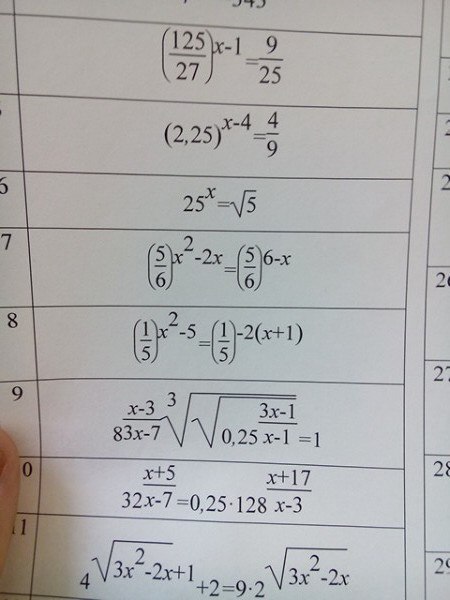 (125/27)^(x-1) = 9/25
(2,25)^(x-4) = 4/9
6 25^x = √5
7 (5/6)^(x²-2x) = (5/6)^(6-x)
8 (1/5)^(x²-5) = (1/5)^(-2(x+1))
9 8^((x-3)/(3x-7)) ∛√(0,25^((3x-1)/(x-1))) = 1 27
0 32^((x+5)/(x-7)) = 0,25·128^((x+17)/(x-3)) 28
11 4^(√(3x²-2x)+1) +2=9·2^(√(3x²-2x)) 29